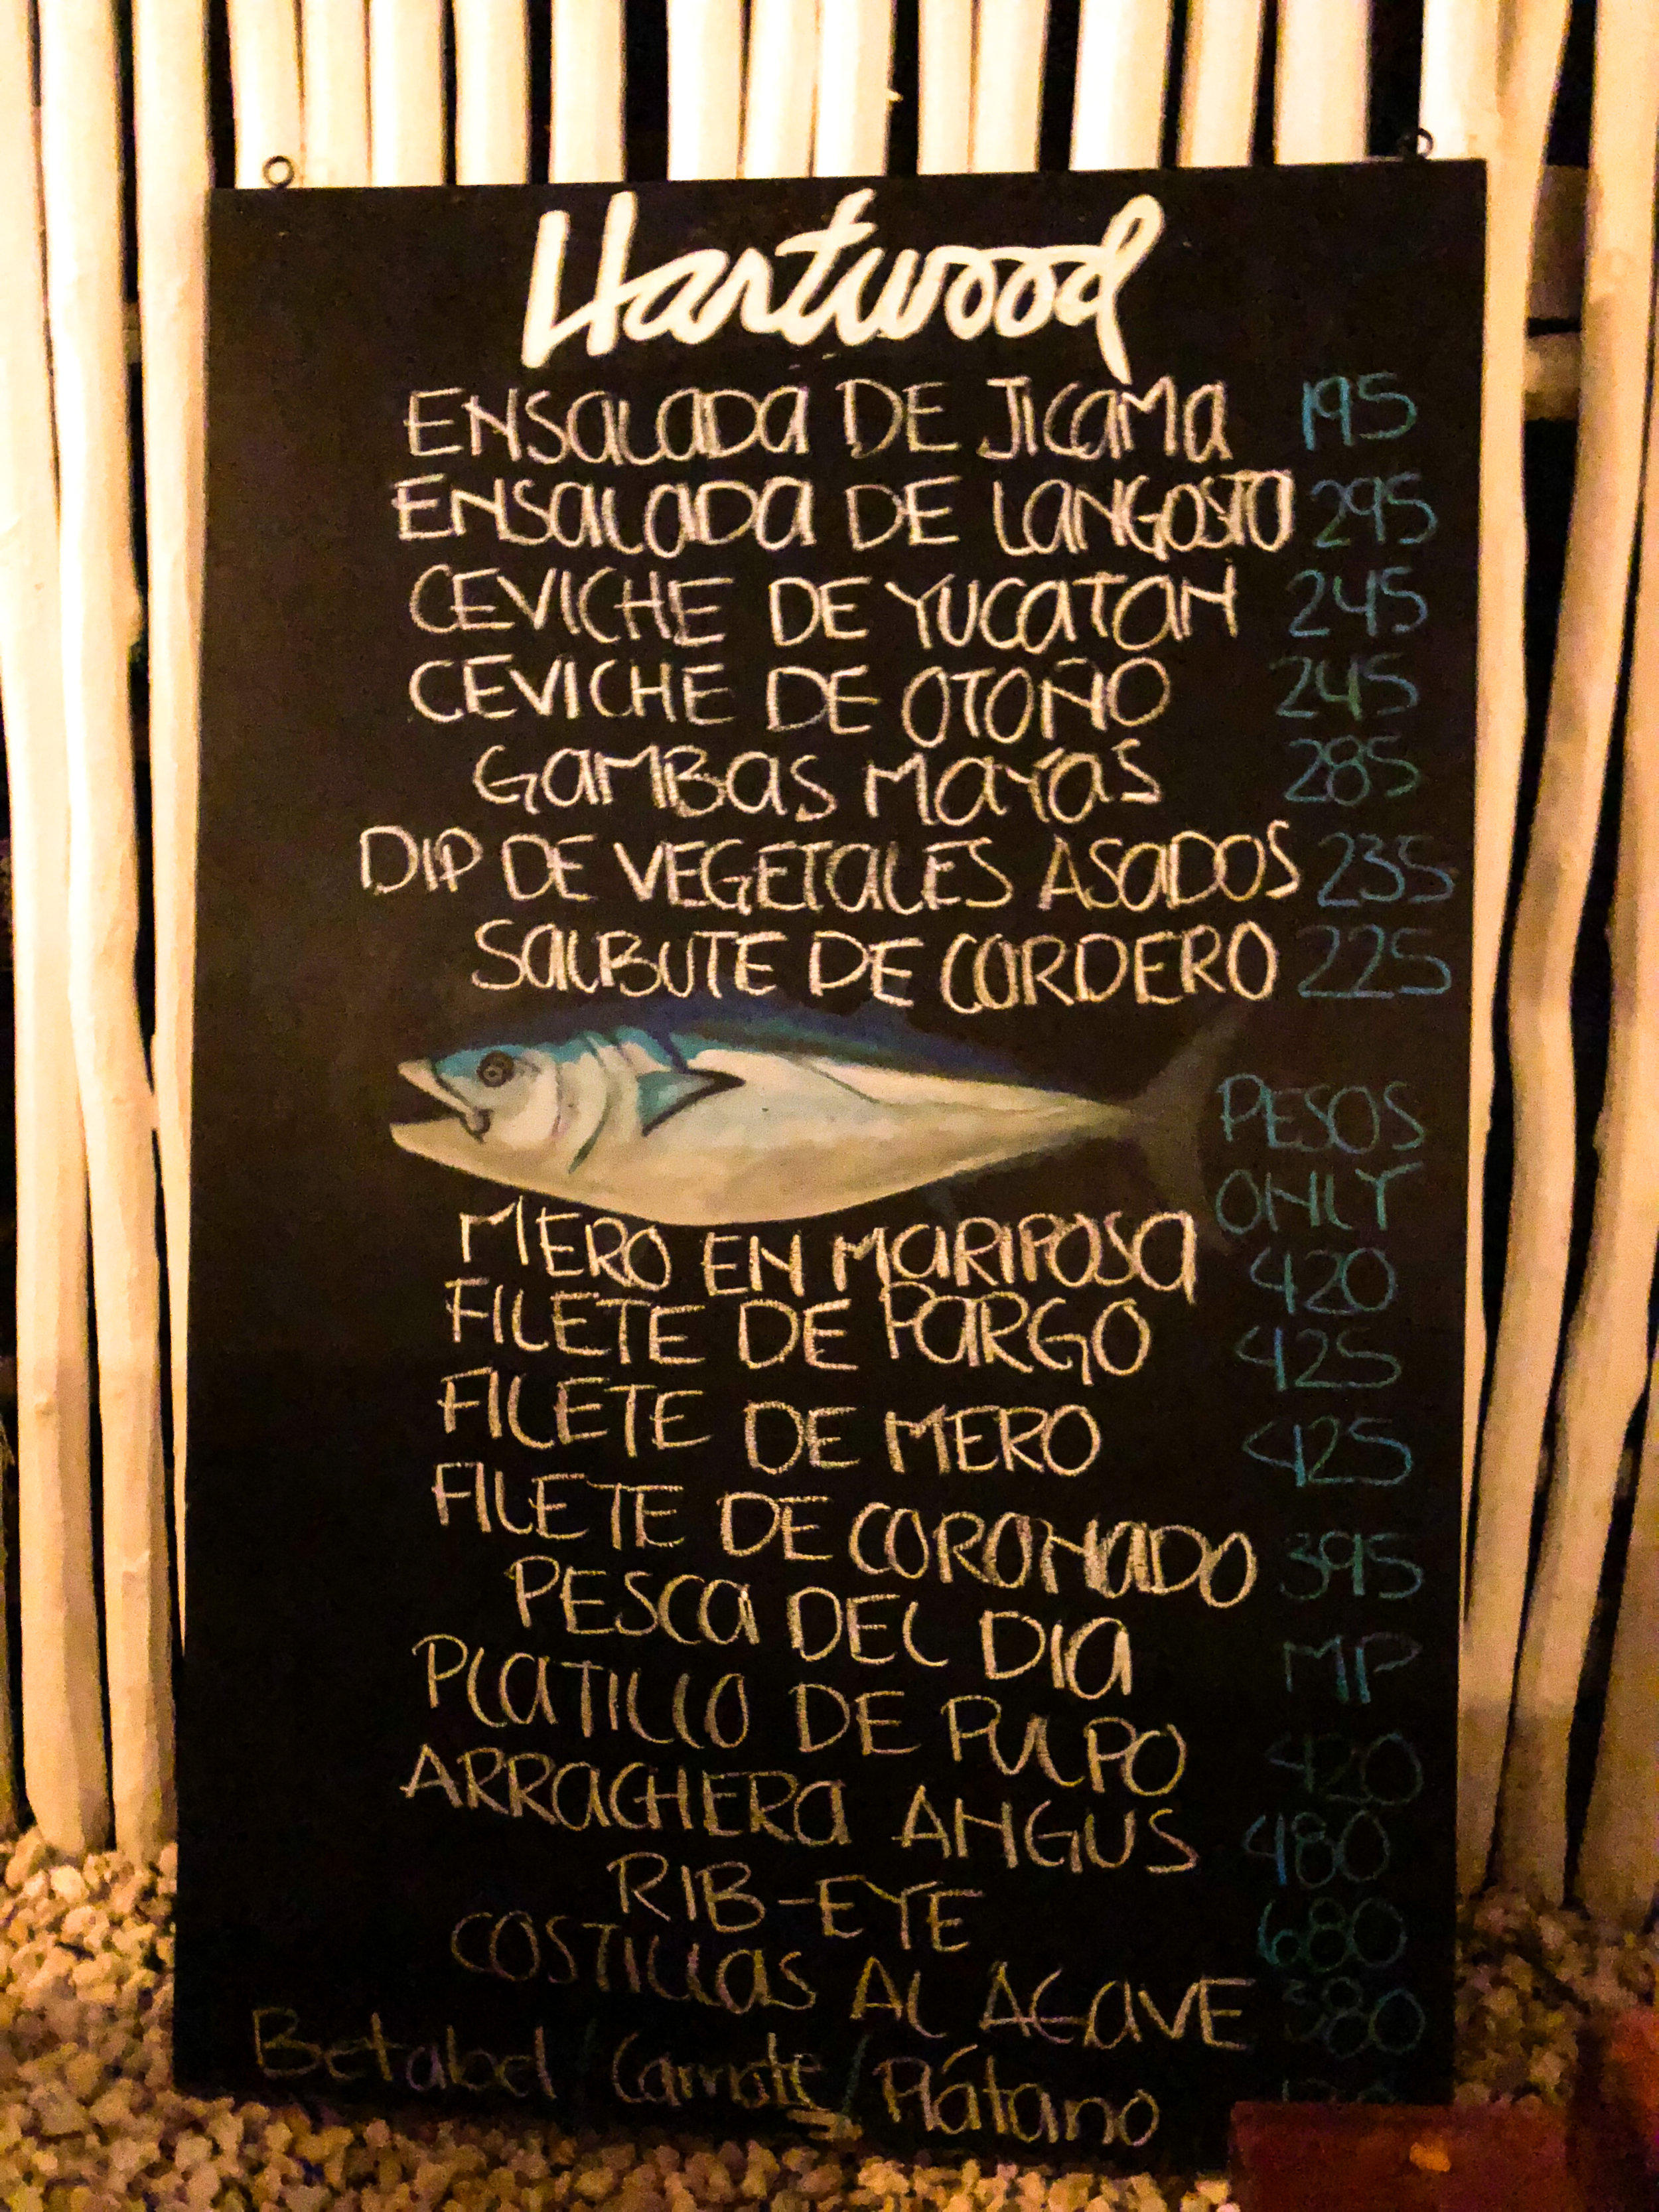 Hartwood
ENSALADA DE JICAMA 195
ENSALADA DE LANGOSTA 295
CEVICHE DE YUCATAN 245
CEVICHE DE OTOÑO 245
GAMBAS MAYAS 285
DIP DE VEGETALES ASADOS 235
SALBUTE DE CORDERO 225
PESOS
ONLY
MERO EN MARIPOSA 420
FILETE DE PARGO 425
FILETE DE MERO 425
FILETE DE CORONADO 395
PESCA DEL DIA MP
PLATILLO DE PULPO 420
ARRACHERA ANGUS 480
RIB-EYE 680
COSTILLAS AL AGAVE 380
Betabel / Camote / Plátano